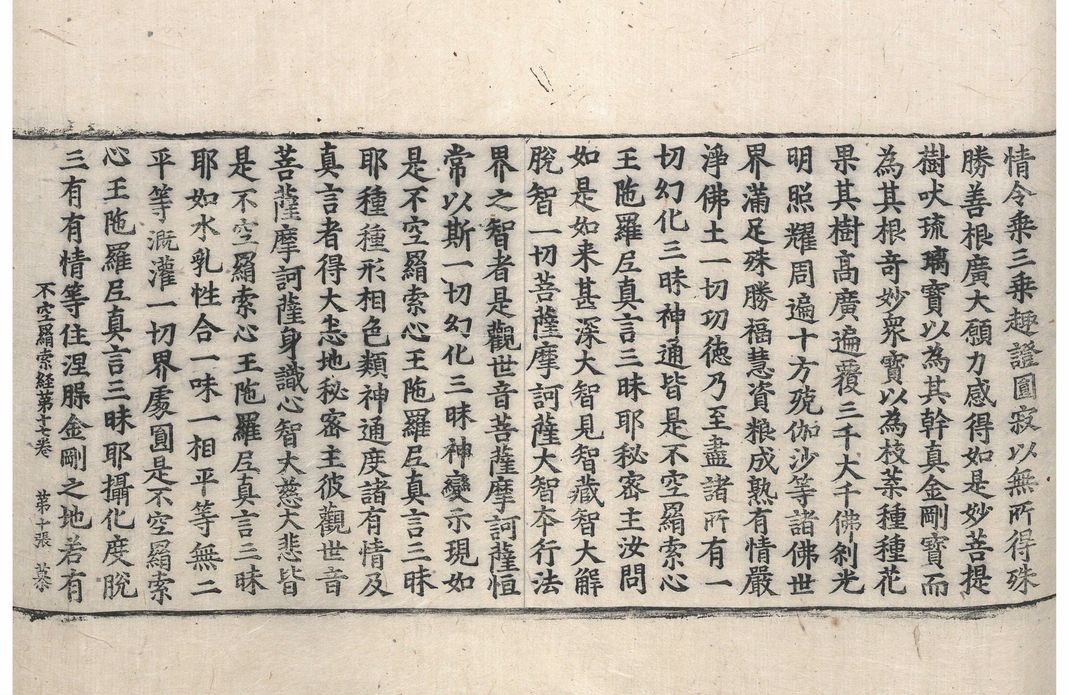 情令乗三乗趣證圓寂以無所得殊
勝善根廣大願力感得如是妙菩提
樹吠琉璃寶以為其幹真金剛寶而
為其根奇妙衆寶以為枝葉種種花
果其樹髙廣遍覆三千大千佛刹光
明照耀周遍十方殑伽沙等諸佛世
界滿足殊勝福慧資粮成熟有情嚴
淨佛土一切功徳乃至盡諸所有一
切幻化三昧神通皆是不空羂索心
王陁羅尼真言三昧耶秘密主汝問
如是如来甚深大智見智藏智大解
脫智一切菩薩摩訶薩大智夲行法
界之智者是觀世音菩薩摩訶薩恒
常以斯一切幻化三昧神變示現如
是不空羂索心王陁羅尼真言三昧
耶種種形相色類神通度諸有情及
真言者得大悉地秘密主彼觀世音
菩薩摩訶薩身識心智大慈大悲皆
是不空羂索心王陁羅尼真言三昧
耶如水乳性合一味一相平等無二
平等溉灌一切界處圓是不空羂索
心王陁羅尼真言三昧耶攝化度脫
不空羂索経第十卷 第十張 慕
三有有情等住涅槃金剛之地若有